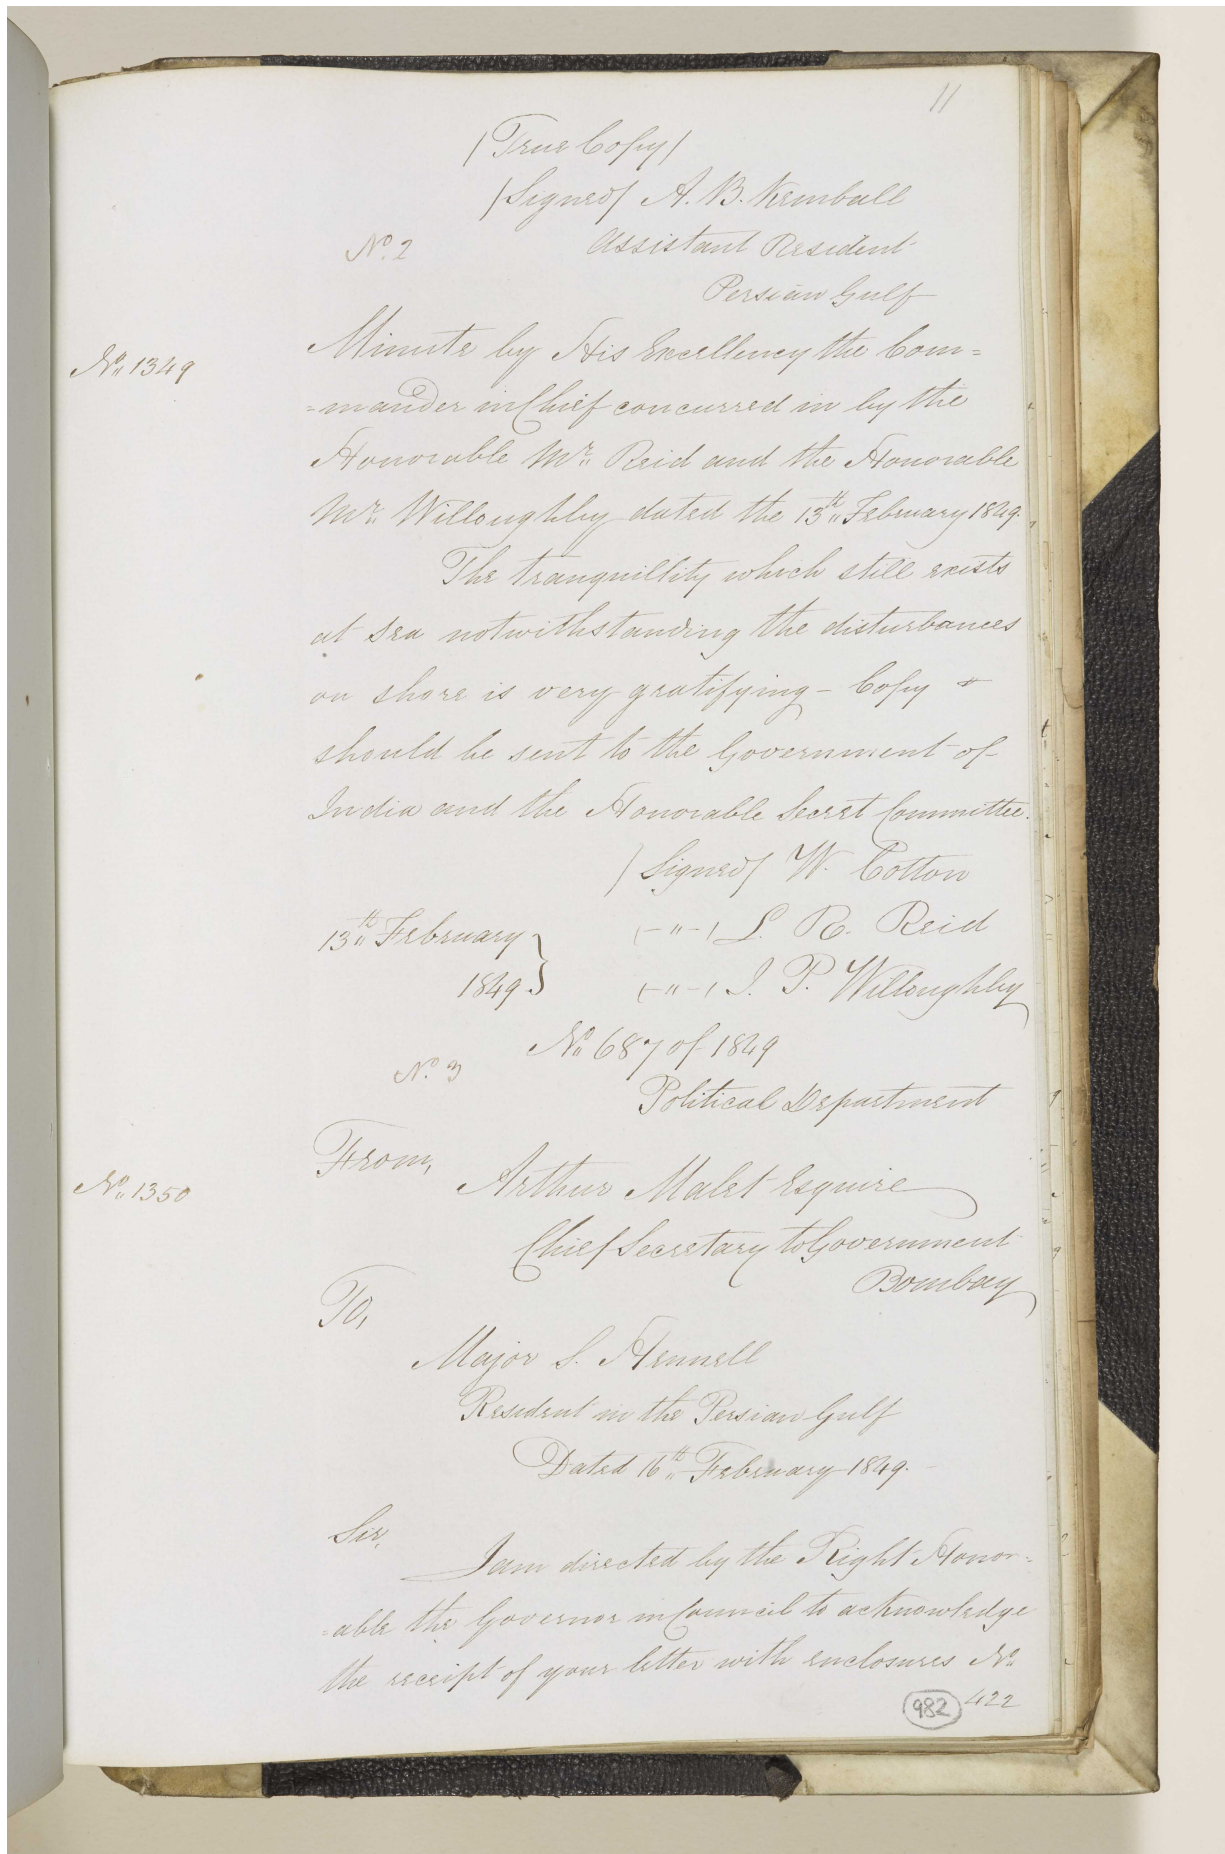 11
(True Copy)
(Signed) A. B. Kemball
No. 2
Assistant Resident
Persian Gulf
No. 1349
Minute by His Excellency the Com=
=mander in Chief concurred in by the
Honorable Mr. Reid and the Honorable
Mr. Willoughby dated the 13th February 1849.
The tranquillity which still exists
at sea notwithstanding the disturbances
on shore is very gratifying - Copy
should be sent to the Government of
India and the Honorable Secret Committee.
(Signed) W. Cotton
13th February
1849 }
(-"-) L. R. Reid
(-"-) J. P. Willoughby
No. 687 of 1849
No. 3
Political Department
From,
No. 1350
Arthur Malet Esquire
Chief Secretary to Government
Bombay
To,
Major S. Hennell
Resident in the Persian Gulf
Dated 16th February 1849.
Sir,
I am directed by the Right Honor=
=able the Governor in Council to acknowledge
the receipt of your letter with enclosures No.
982 422